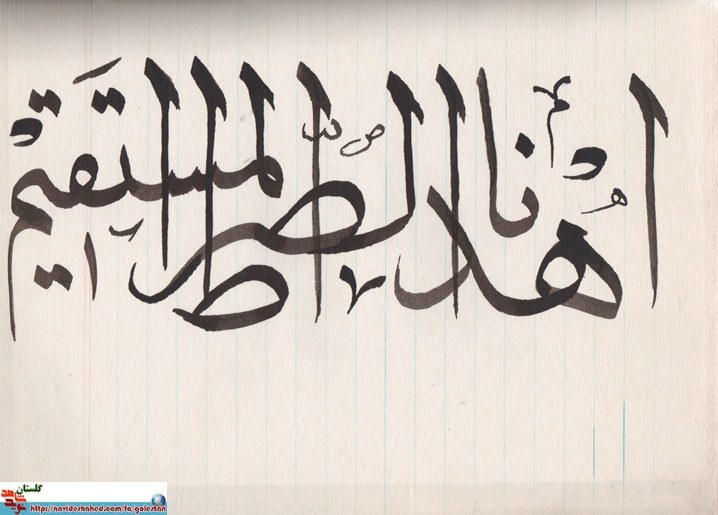 اهدنا الصراط المستقیم
گلستان
نوید شاهد
https://navideshahed.com/fa/golestan